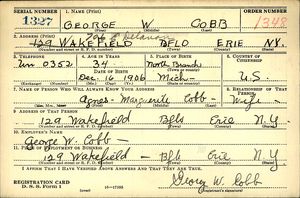 SERIAL NUMBER
1. NAME (Print)
ORDER NUMBER
1327
GEORGE W COBB
1348
(First) (Middle) (Last)
2. ADDRESS (Print)
129 WAKEFIELD BFLO ERIE N.Y.
(Number and street) (Town) (County) (State)
3. TELEPHONE
4. AGE IN YEARS
5. PLACE OF BIRTH
6. COUNTRY OF CITIZENSHIP
Un 0352
34
North Branch
DATE OF BIRTH
Dec. 16 1906
Mich.
U.S.
7. NAME OF PERSON WHO WILL ALWAYS KNOW YOUR ADDRESS
8. RELATIONSHIP OF THAT PERSON
Agnes Marguerite Cobb
Wife
9. ADDRESS OF THAT PERSON
129 Wakefield Bflo Erie N.Y.
10. EMPLOYER'S NAME
George W. Cobb
11. PLACE OF EMPLOYMENT OR BUSINESS
129 Wakefield - Bflo Erie N.Y.
I AFFIRM THAT I HAVE VERIFIED ABOVE ANSWERS AND THAT THEY ARE TRUE.
REGISTRATION CARD
D. S. S. Form 1
George W. Cobb